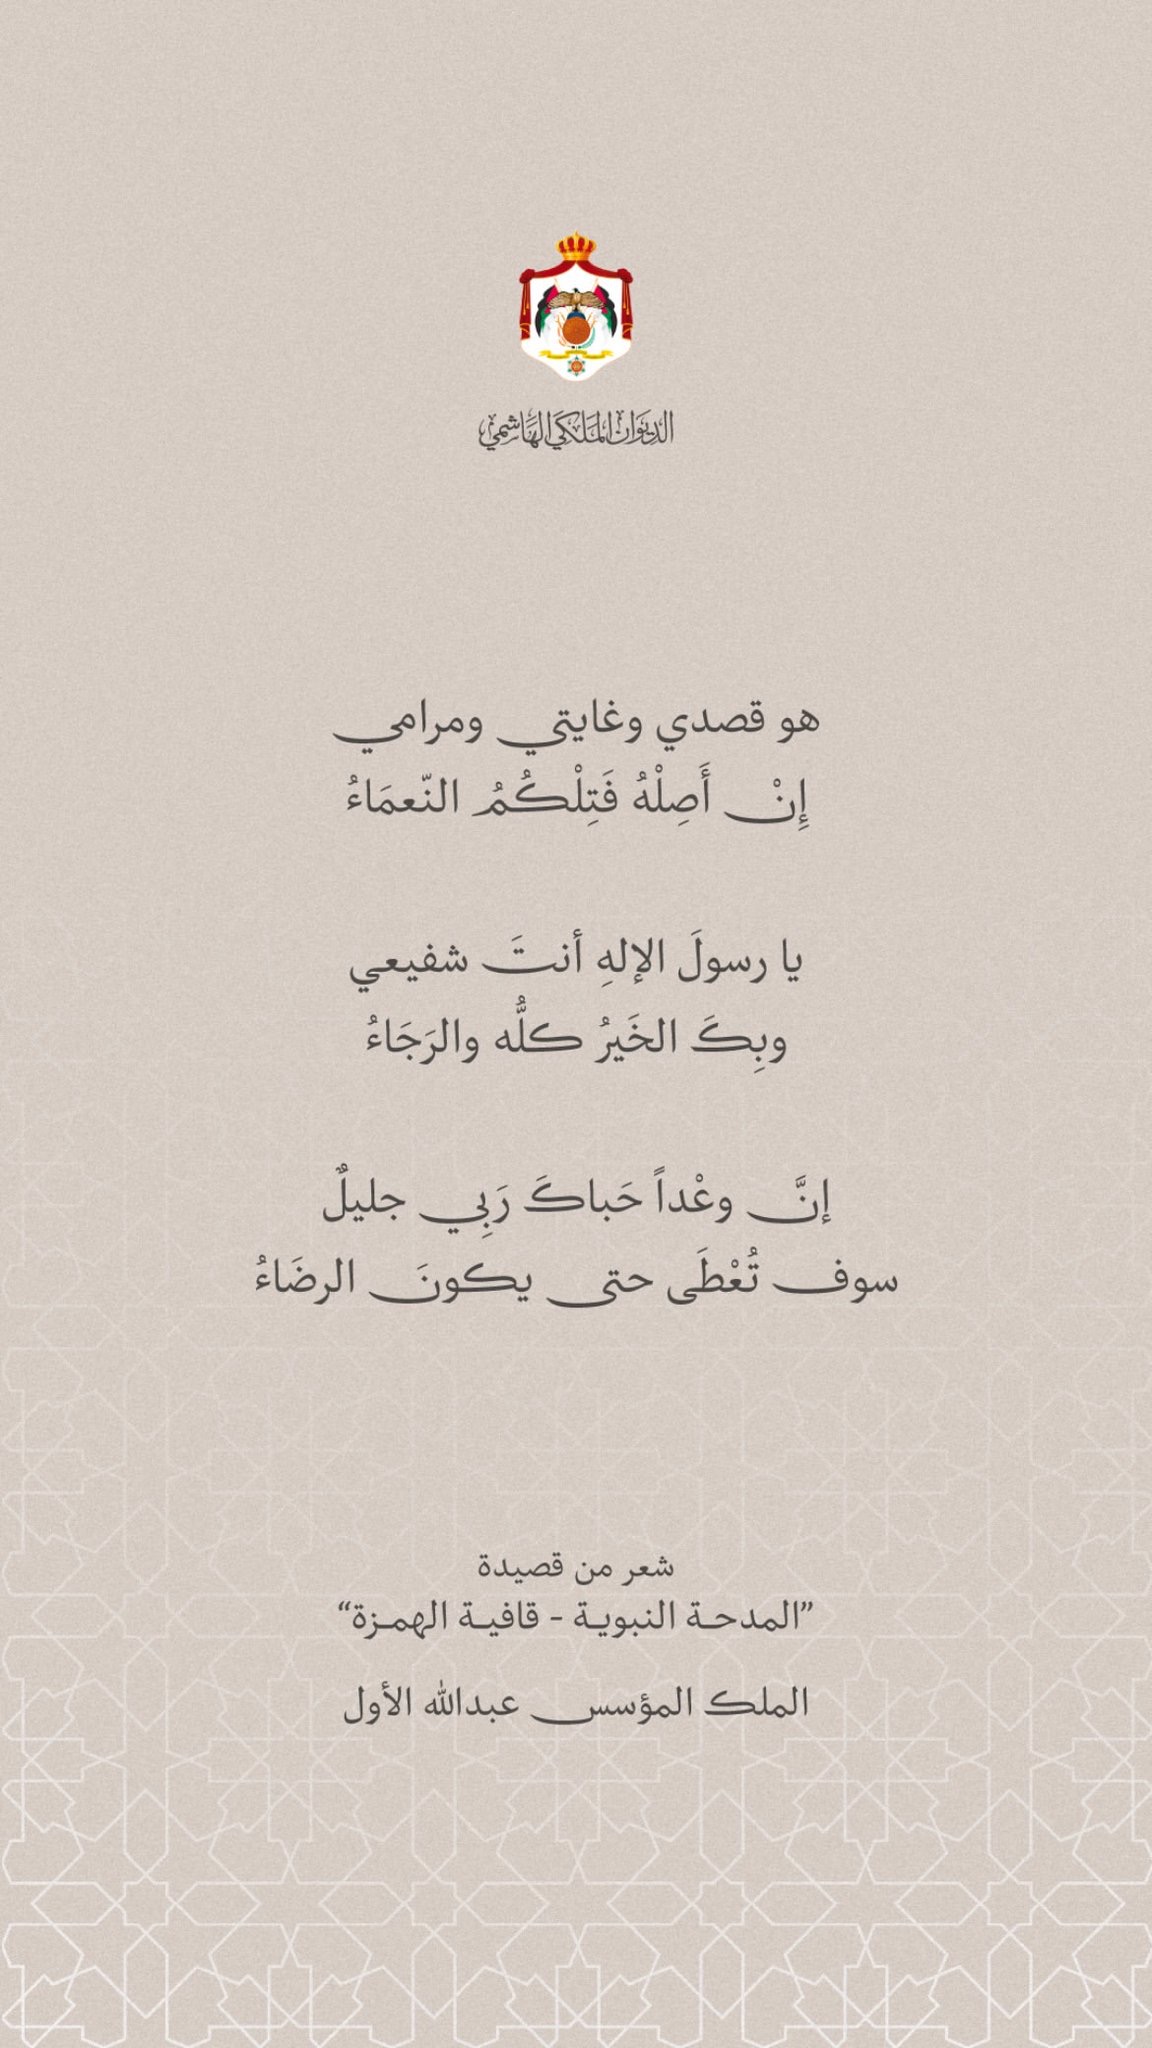 الديوان الملكي الهاشمي
هو قصدي وغايتي ومرامي
إِنْ أَصِلْهُ فَتِلْكُمُ النّعمَاءُ
يا رسولَ الإلهِ أنتَ شفيعي
وبِكَ الخَيرُ كلُّه والرَجَاءُ
إنَّ وعْداً حَباكَ رَبِي جليلٌ
سوف تُعْطَى حتى يكونَ الرضَاءُ
شعر من قصيدة
”المدحة النبوية - قافية الهمزة“
الملك المؤسس عبدالله الأول